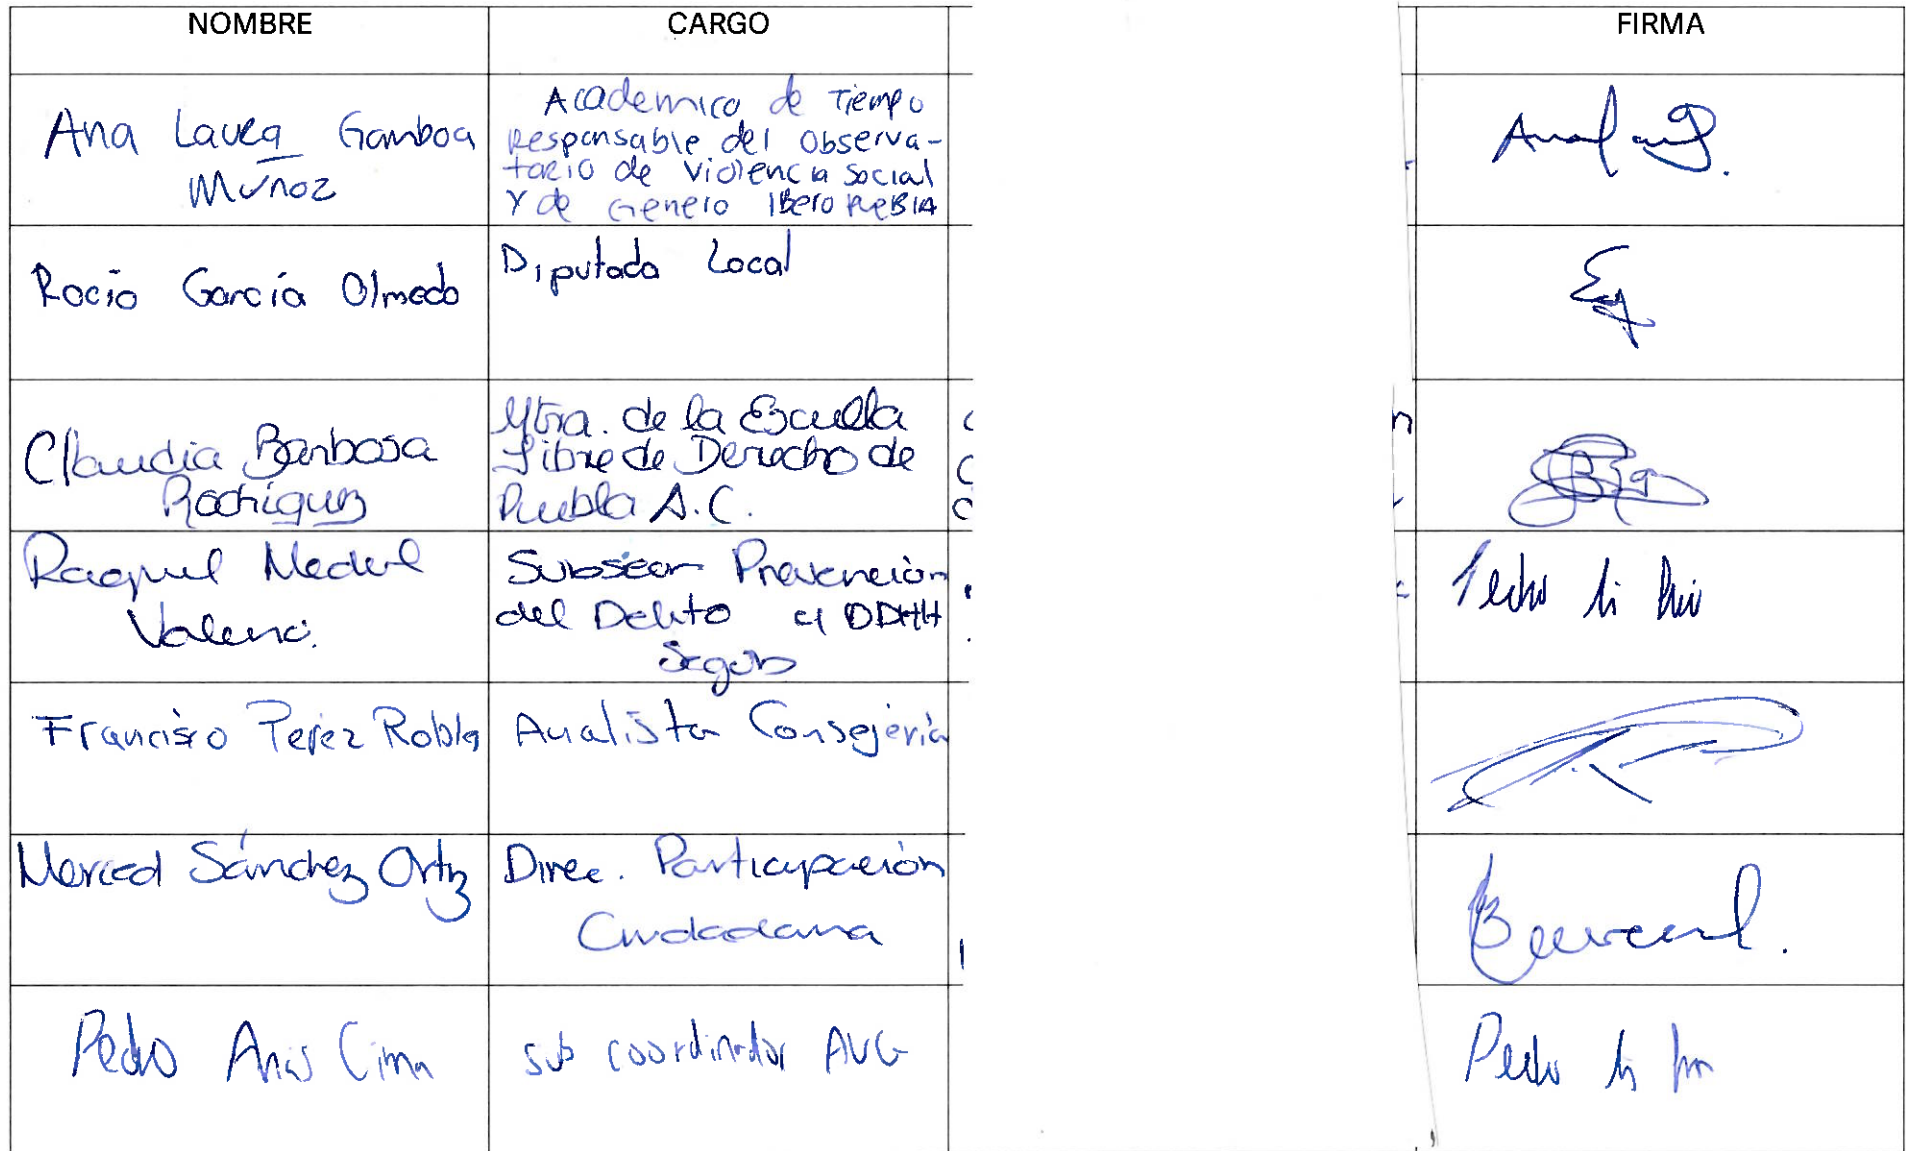 NOMBRE CARGO FIRMA
Ana Laura Gamboa
Muñoz
Academico de Tiempo
Responsable del Observa-
torio de Violencia Social
Y de Genero IBERO PUEBLA
Rocio García Olmedo
Diputada Local
Claudia Barbosa
Rodríguez
Mtra. de la Escuela
Libre de Derecho de
Puebla A.C.
Raquel Medel
Valencia
Prevención
del Delito y DDHH
Segob
Francisco Perez Robles
Analista Consejería
Merced Sánchez Ortiz
Direc. Participación
Ciudadana
Pedro Arias Cima
sub coordinador AVG